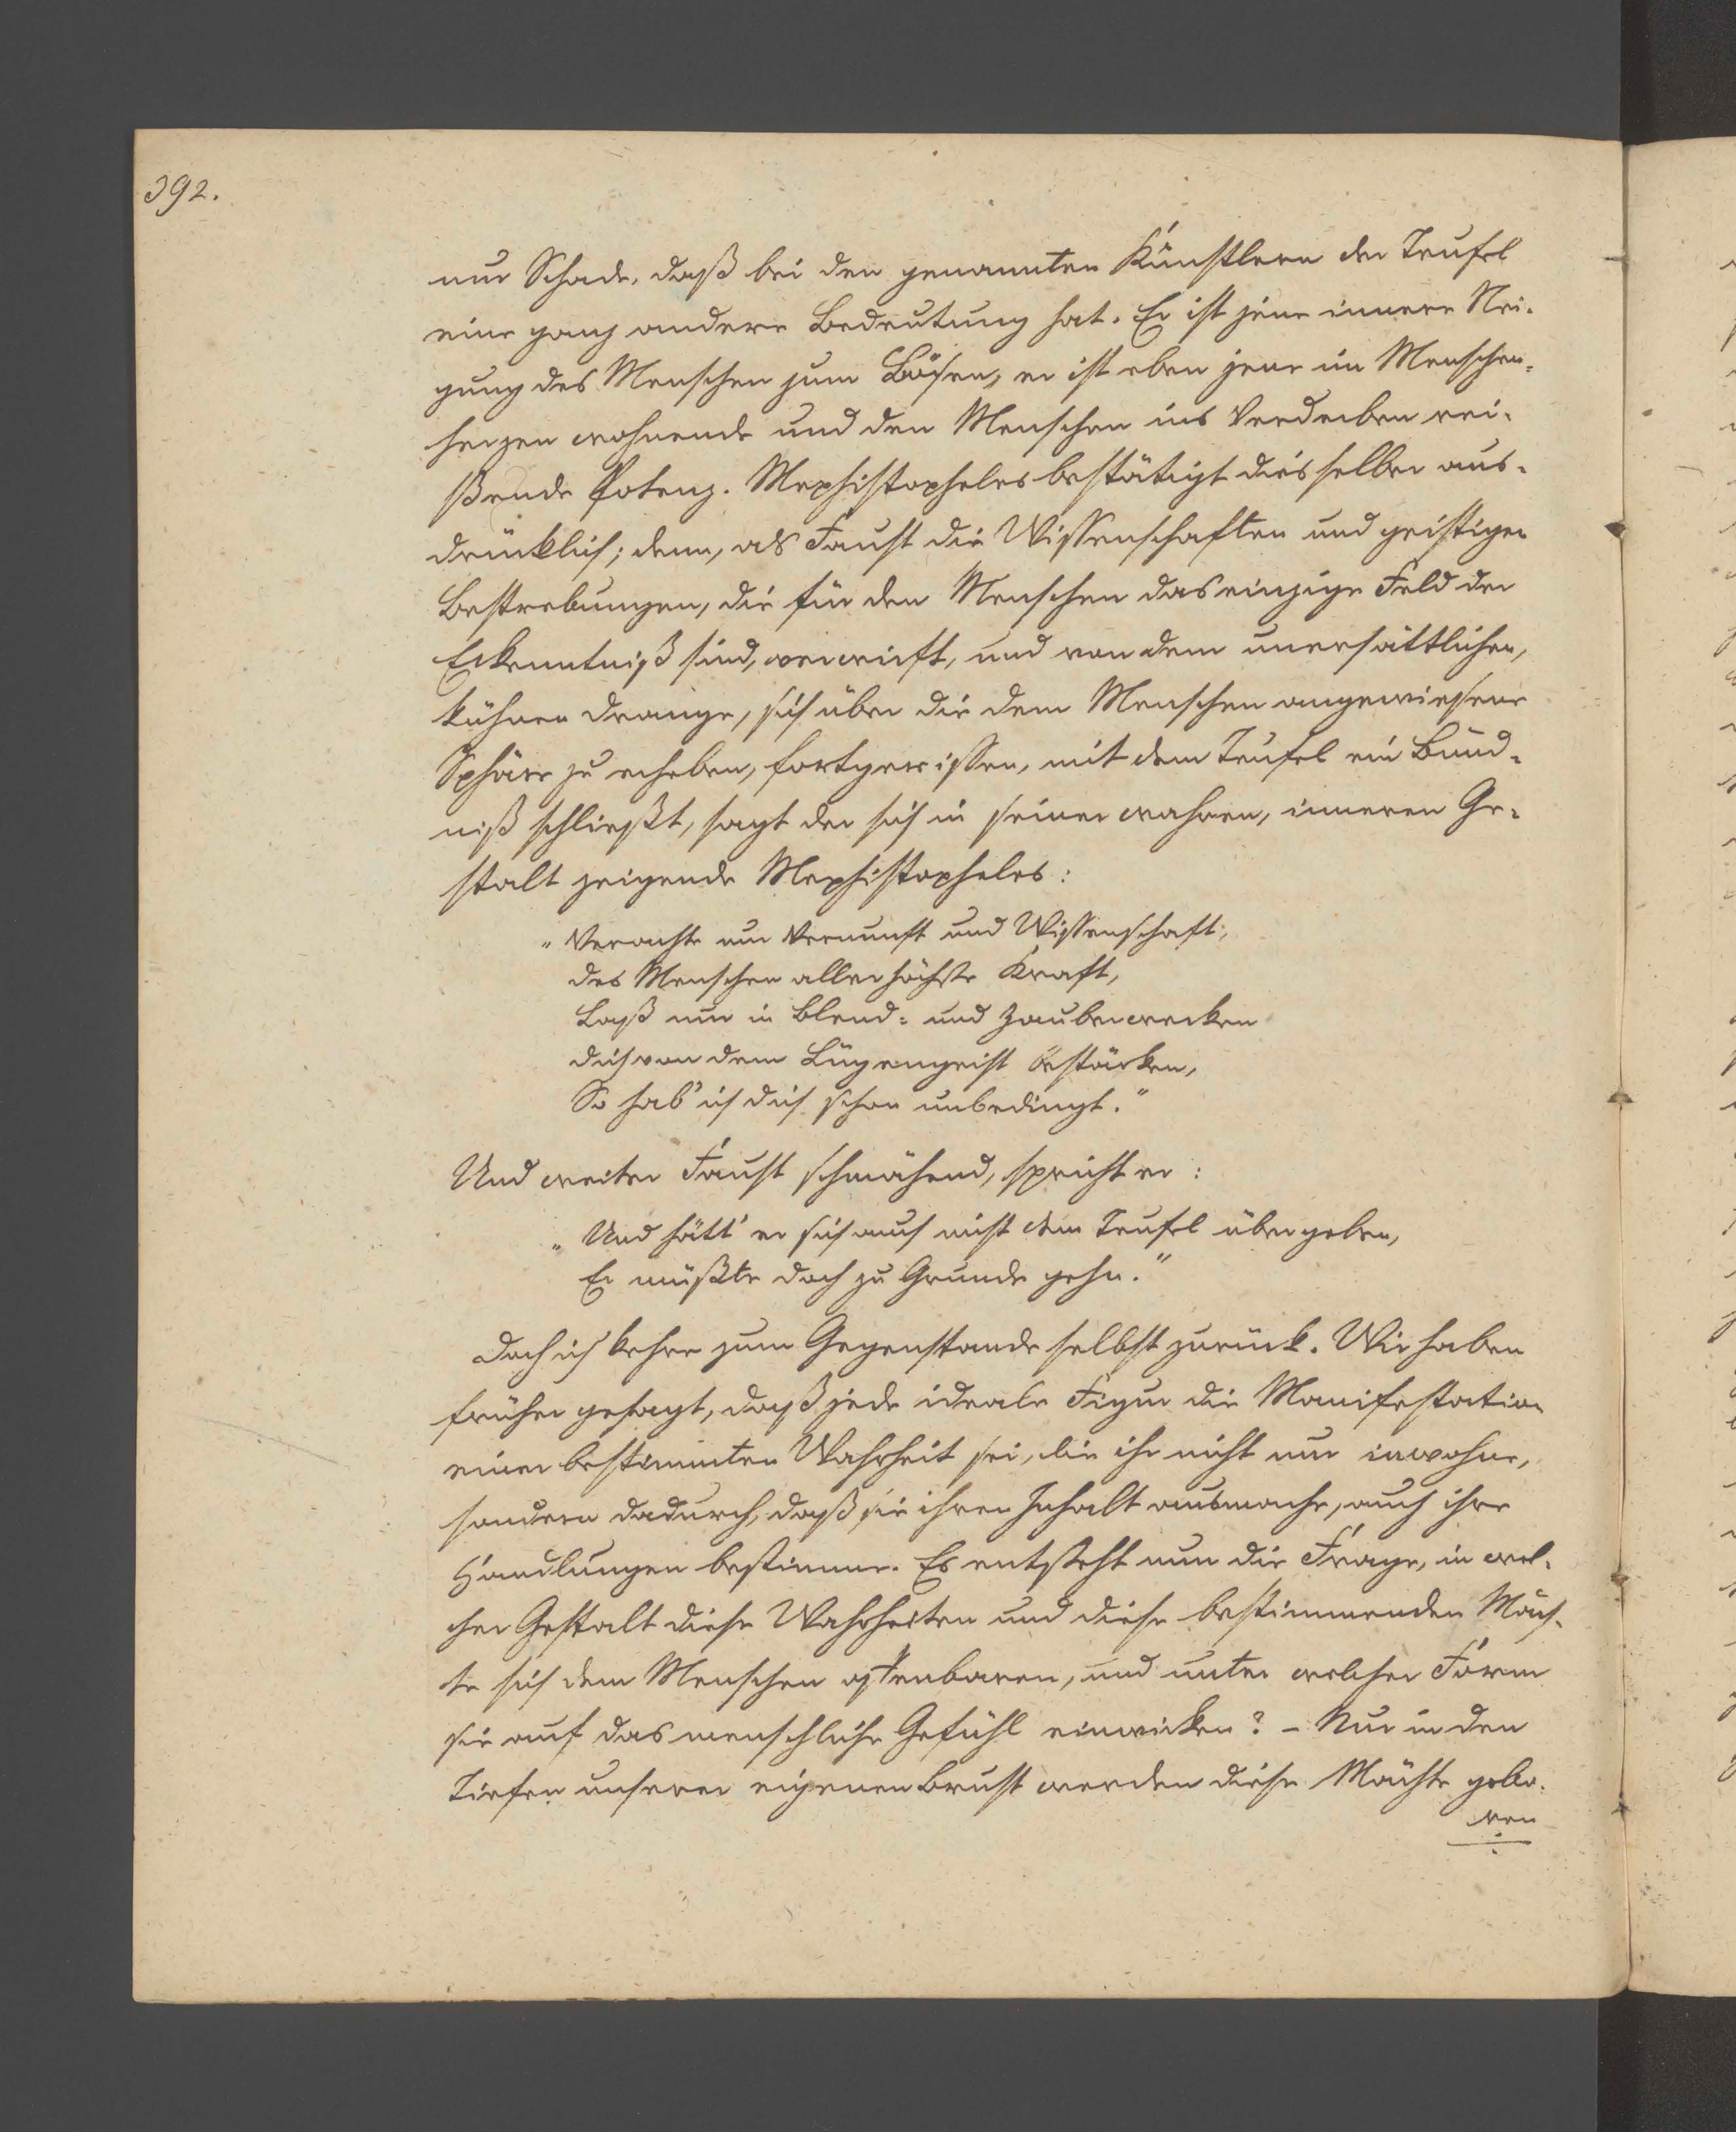 392.
nur Schade, daß bei den genannten Künstlern der Teufel
eine ganz andere Bedeutung hat. Er ist jene innere Nei-
gung des Menschen zum Bösen, er ist eben jene im Menschen-
herzen wohnende und den Menschen ins Verderben rei-
ßende Potenz. Mephistopheles bestätigt dies selber aus-
drücklich; denn, als Faust die Wissenschaften und geistigen
Bestrebungen, die für den Menschen das einzige Feld der
Erkenntniß sind, verwirft, und von dem unersättlichen,
kühnen Drange, sich über die dem Menschen angewiesene
Sphäre zu erheben, fortgerissen, mit dem Teufel ein Bünd-
niß schließt, sagt der sich in seiner wahren, inneren Ge-
stalt zeigende Mephistopheles:
„Verachte nur Vernunft und Wissenschaft,
des Menschen allerhöchste Kraft,
Laß nur in Blend- und Zauberwerken
dich von dem Lügengeist bestärken,
So hab' ich dich schon unbedingt."
Und weiter Faust schmähend, spricht er:
„Und hätt' er sich auch nicht dem Teufel übergeben,
Er müßte doch zu Grunde gehn."
Doch ich kehre zum Gegenstande selbst zurück. Wir haben
früher gesagt, daß jede ideale Figur die Manifestation
einer bestimmten Wahrheit sei, die ihr nicht nur inwohne,
sondern dadurch, daß sie ihren Inhalt ausmache, auch ihre
Handlungen bestimme. Es entsteht nun die Frage, in wel-
cher Gestalt diese Wahrheiten und diese bestimmenden Mäch-
te sich dem Menschen offenbaren, und unter welcher Form
sie auf das menschliche Gefühl einwirken? – Nur in den
Tiefen unserer eigenen Brust werden diese Mächte gebo-
ren